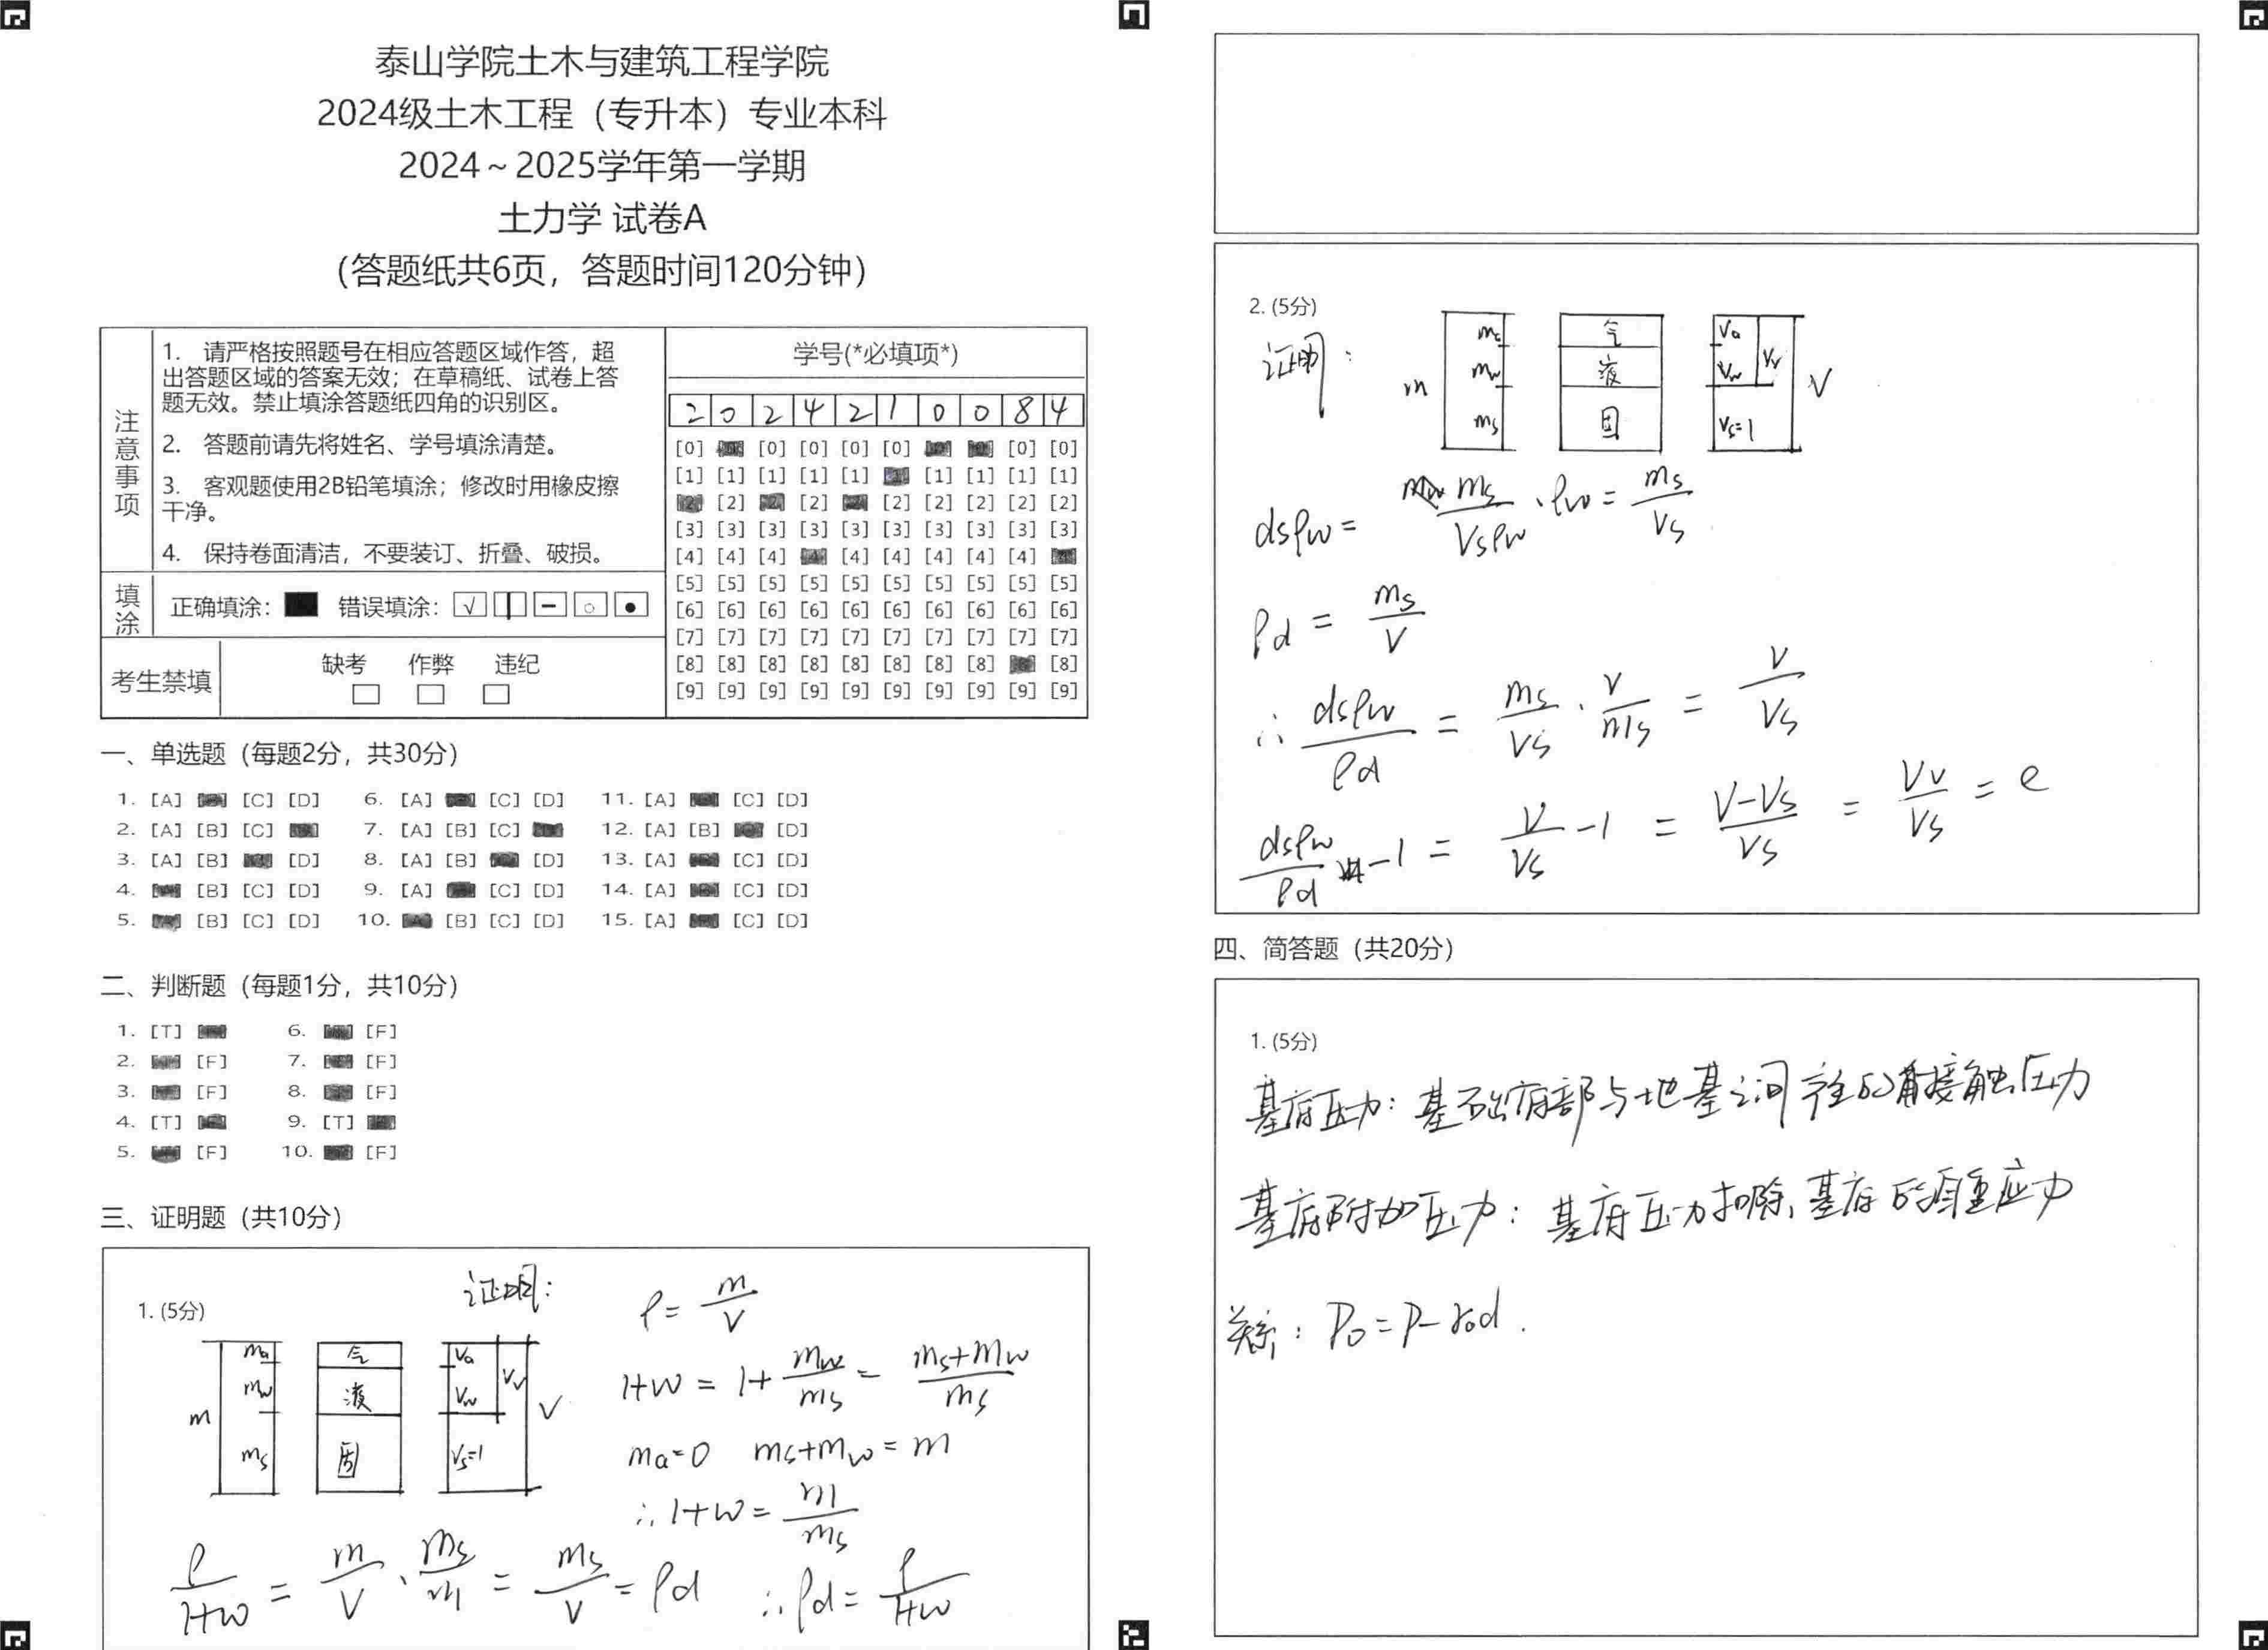 泰山学院土木与建筑工程学院
2024级土木工程（专升本）专业本科
2024～2025学年第一学期
土力学 试卷A
（答题纸共6页，答题时间120分钟）
注意事项
1. 请严格按照题号在相应答题区域作答，超
出答题区域的答案无效；在草稿纸、试卷上答
题无效。禁止填涂答题纸四角的识别区。
2. 答题前请先将姓名、学号填涂清楚。
3. 客观题使用2B铅笔填涂；修改时用橡皮擦
干净。
4. 保持卷面清洁，不要装订、折叠、破损。
填涂
正确填涂： 错误填涂：
考生禁填
缺考 作弊 违纪
学号(*必填项*)
2 0 2 4 2 1 0 0 8 4
[0] [0] [0] [0] [0] [0] [0]
[1] [1] [1] [1] [1] [1] [1] [1] [1]
[2] [2] [2] [2] [2] [2] [2]
[3] [3] [3] [3] [3] [3] [3] [3] [3] [3]
[4] [4] [4] [4] [4] [4] [4] [4]
[5] [5] [5] [5] [5] [5] [5] [5] [5] [5]
[6] [6] [6] [6] [6] [6] [6] [6] [6] [6]
[7] [7] [7] [7] [7] [7] [7] [7] [7] [7]
[8] [8] [8] [8] [8] [8] [8] [8] [8]
[9] [9] [9] [9] [9] [9] [9] [9] [9] [9]
一、单选题（每题2分，共30分）
1. [A] [C] [D] 6. [A] [C] [D] 11. [A] [C] [D]
2. [A] [B] [C] 7. [A] [B] [C] 12. [A] [B] [D]
3. [A] [B] [D] 8. [A] [B] [D] 13. [A] [C] [D]
4. [B] [C] [D] 9. [A] [C] [D] 14. [A] [C] [D]
5. [B] [C] [D] 10. [B] [C] [D] 15. [A] [C] [D]
二、判断题（每题1分，共10分）
1. [T] 6. [F]
2. [F] 7. [F]
3. [F] 8. [F]
4. [T] 9. [T]
5. [F] 10. [F]
三、证明题（共10分）
1. (5分)
证明：
ρ = m/V
m ma mw ms
气 液 固
Va Vw Vv Vs=1 V
1+w = 1+ mw/ms = (ms+mw)/ms
ma=0 ms+mw=m
∴ 1+w = m/ms
ρ/(1+w) = m/V · ms/m = ms/V = ρd ∴ ρd = ρ/(1+w)
2. (5分)
证明：
m mw ms
气 液 固
Va Vw Vv Vs=1 V
dsρw = ms/(Vsρw) · ρw = ms/Vs
ρd = ms/V
∴ dsρw/ρd = ms/Vs · V/ms = V/Vs
dsρw/ρd -1 = V/Vs -1 = (V-Vs)/Vs = Vv/Vs = e
四、简答题（共20分）
1. (5分)
基底压力：基础底部与地基之间 接触压力
基底附加压力：基底压力扣除基底的自重应力
关系：P0=P-γ0d.